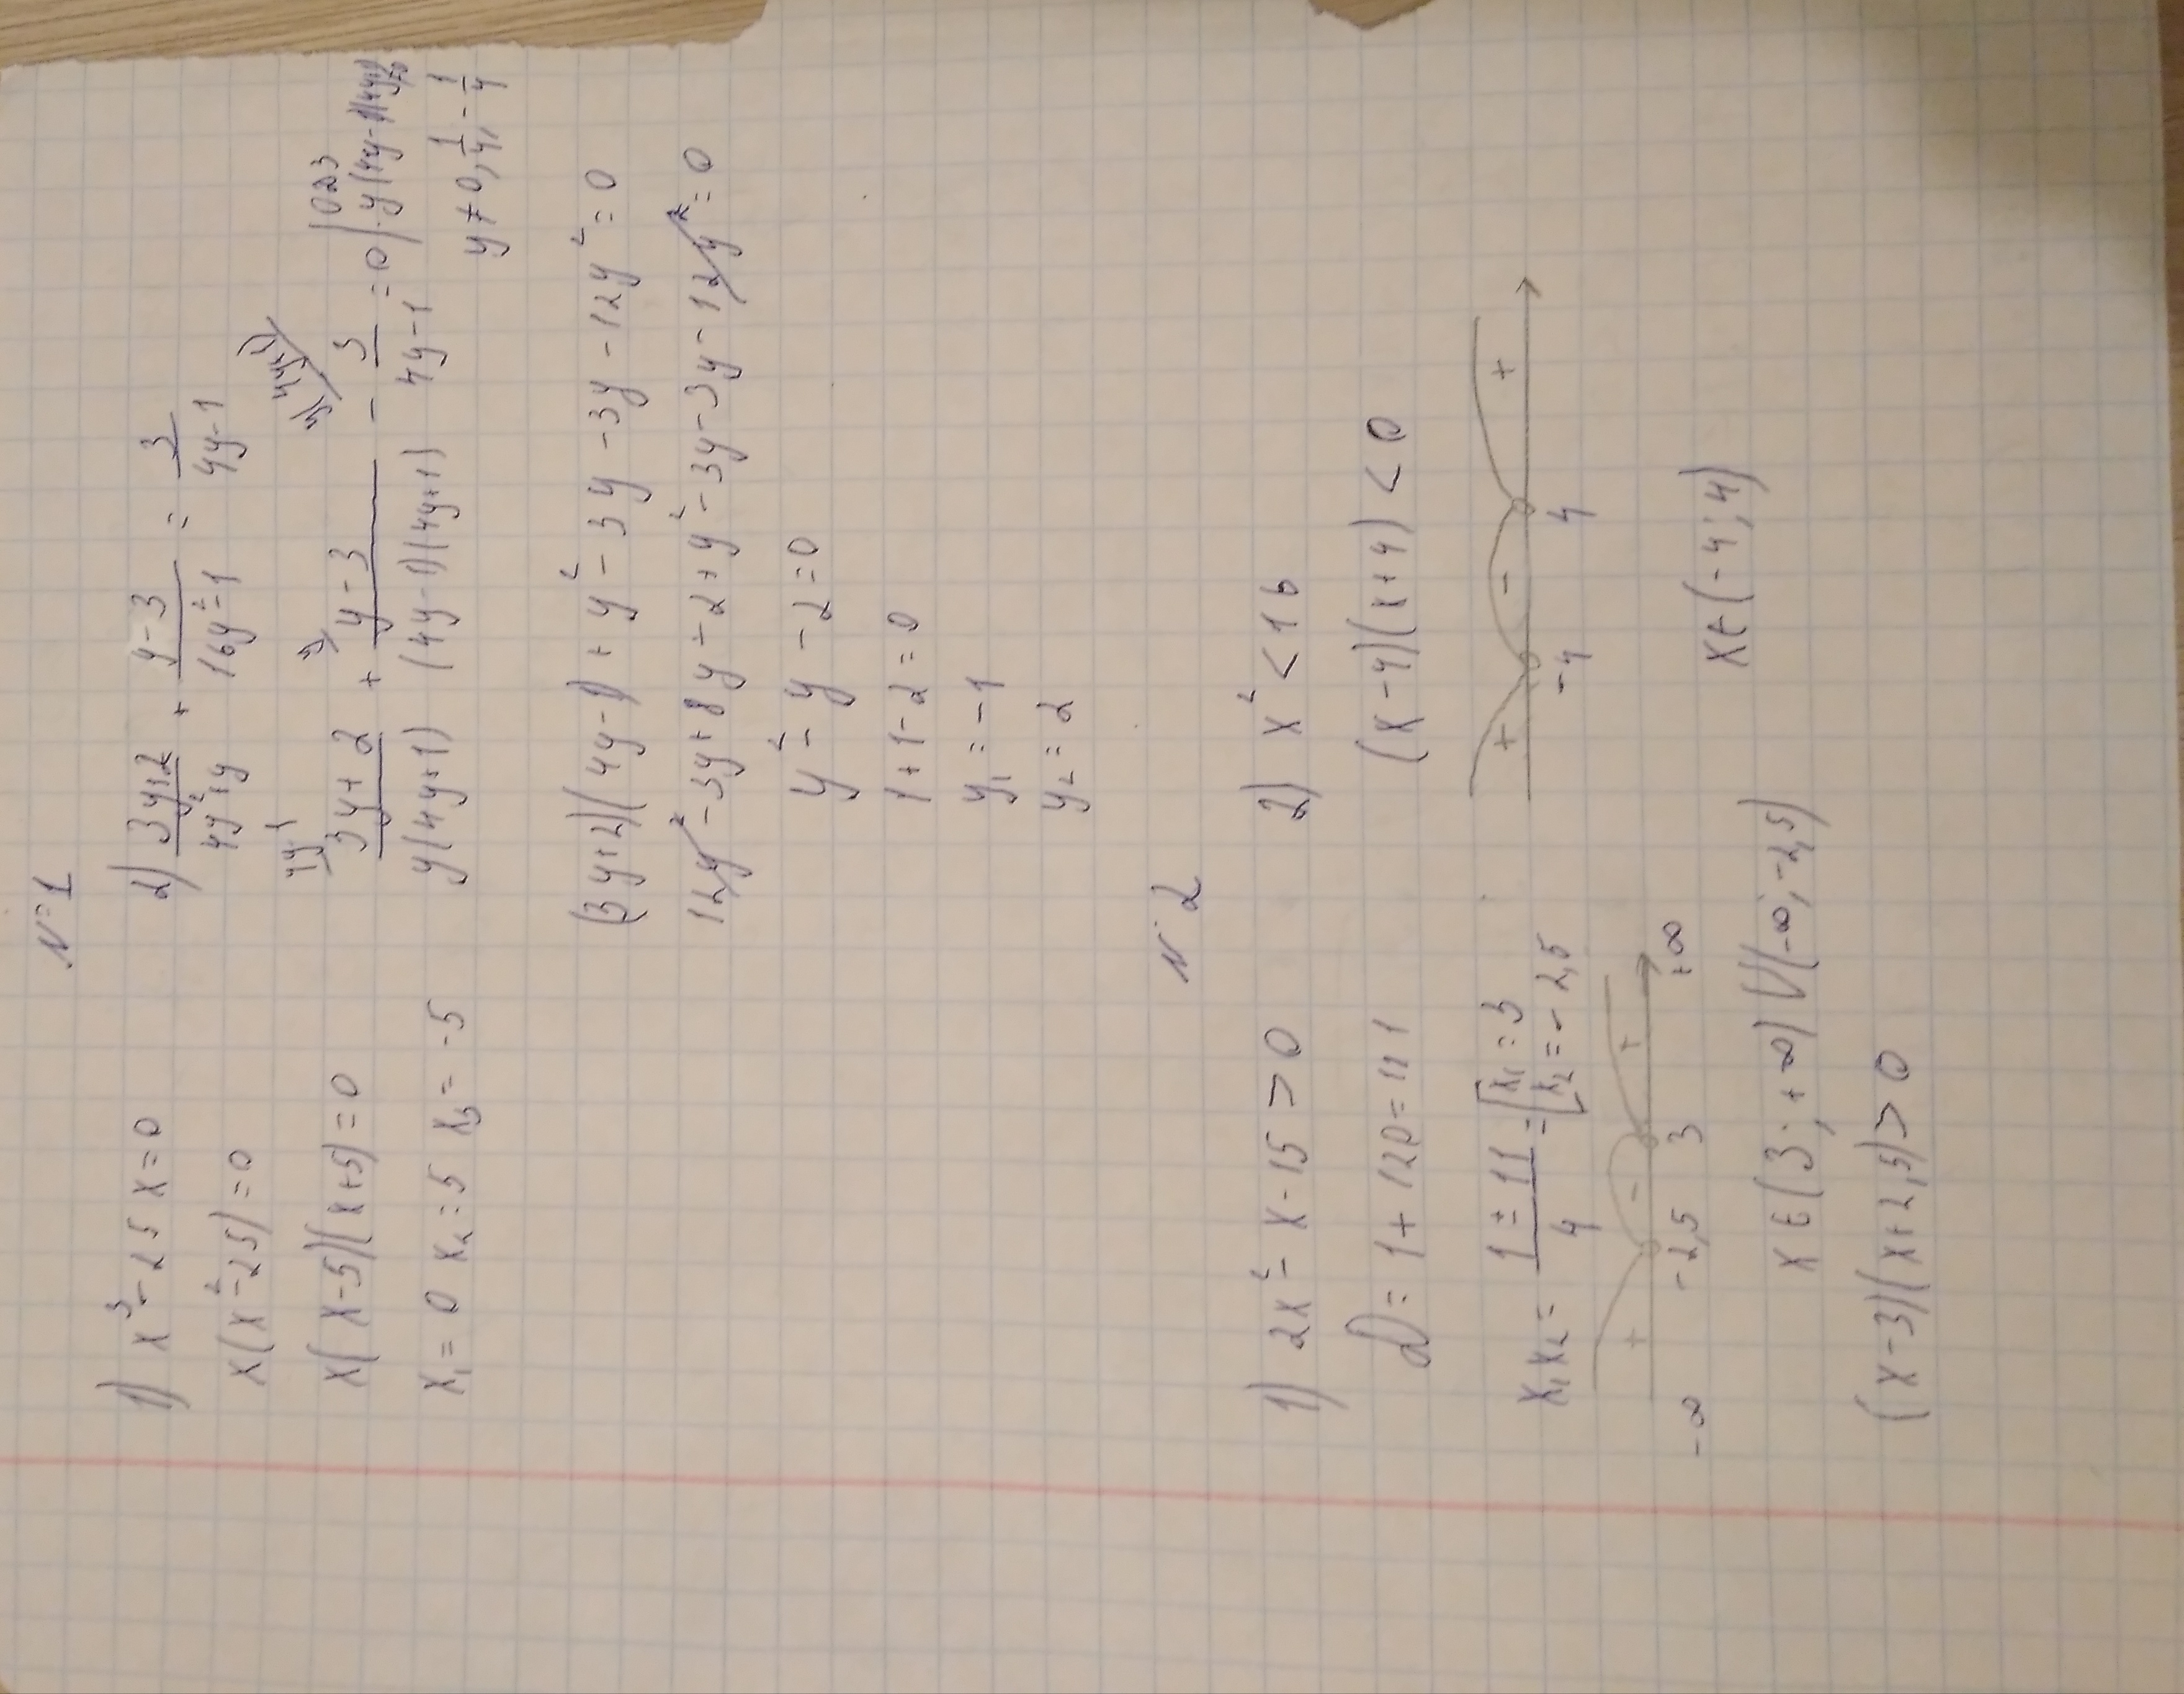 N=1
1) x³-25x=0
x(x²-25)=0
x(x-5)(x+5)=0
x₁=0 x₂=5 x₃=-5
2) 3y+2/4y²+y + y-3/16y²-1 = 3/4y-1
3y+2/y(4y+1) + y-3/(4y-1)(4y+1) - 3/4y-1 =0 | ·y(4y-1)(4y+1)≠0
ОДЗ
y≠0, 1/4, -1/4
(3y+2)(4y-1)+y²-3y-3y-12y²=0
12y²-3y+8y-2+y²-3y-3y-12y²=0
y²-y-2=0
1+1-2=0
y₁=-1
y₂=2
N 2
1) 2x²-x-15>0
D=1+120=111
x₁x₂= 1±11/4 = [x₁=3 x₂=-2,5
+ - +
-∞ -2,5 3 +∞
x∈(3;+∞)U(-∞;-2,5)
(x-3)(x+2,5)>0
2) x²<16
(x-4)(x+4)<0
+ - +
-4 4
x∈(-4;4)